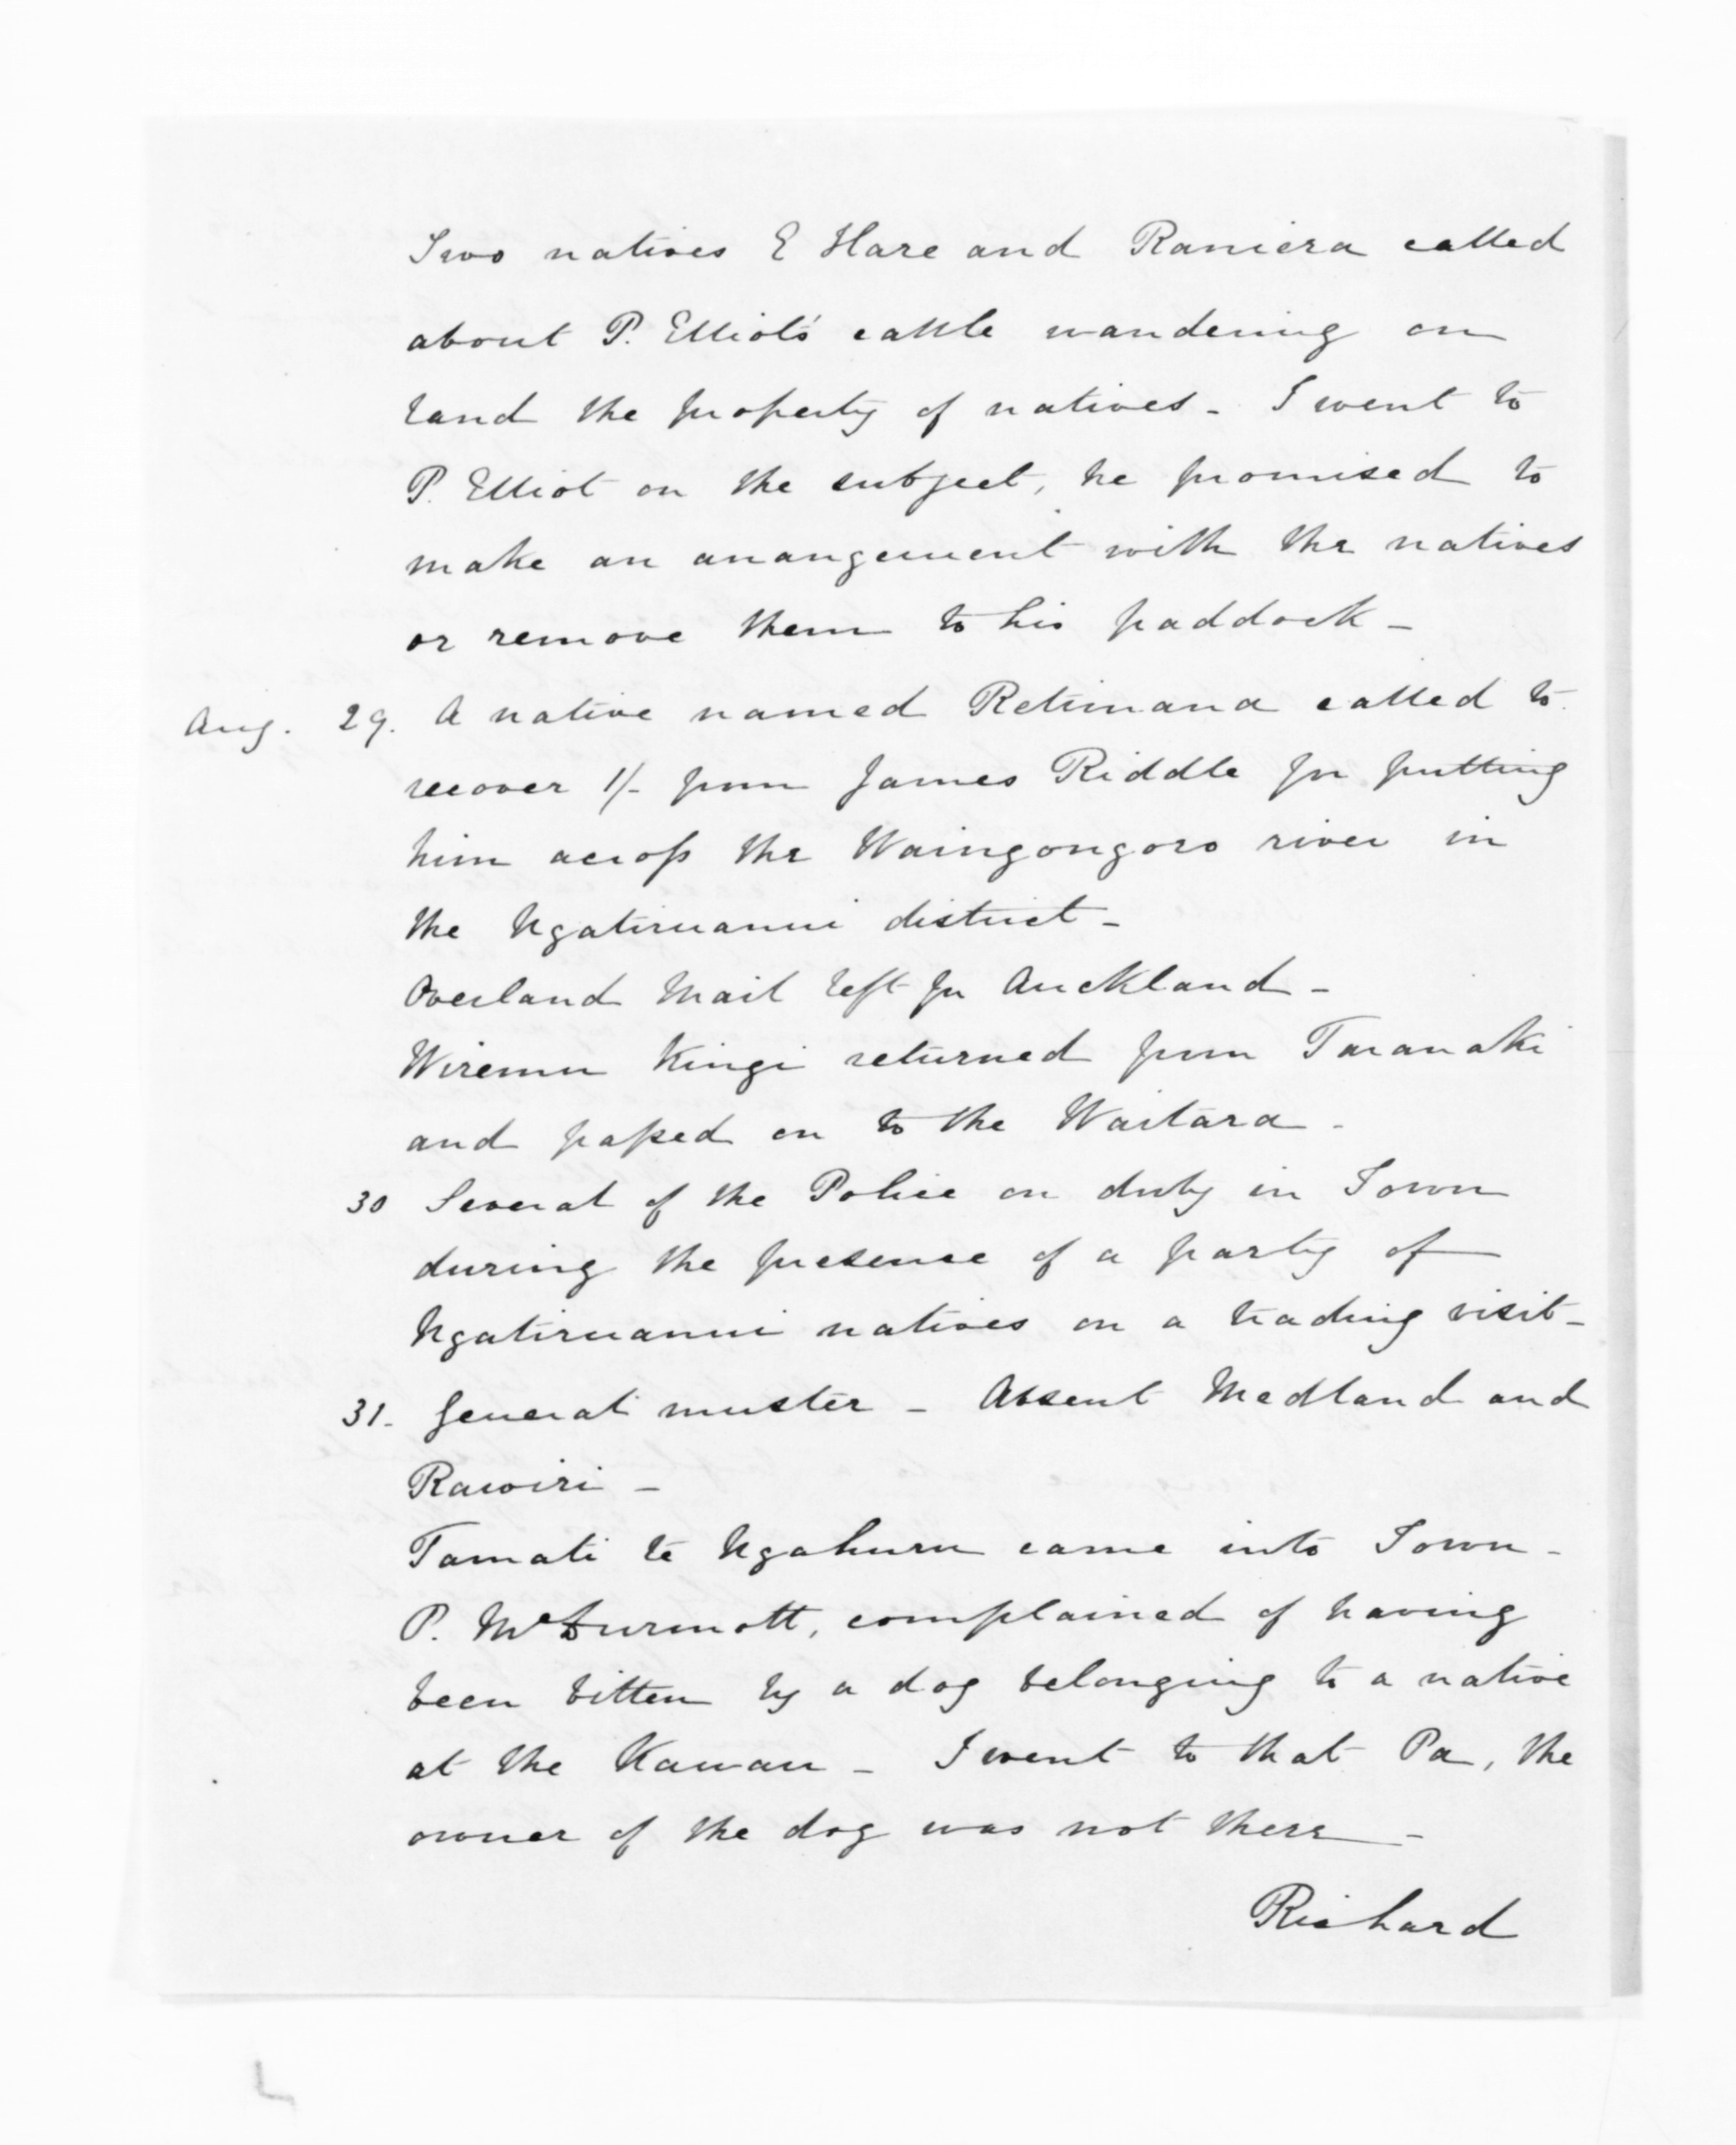 Two natives E Hare and Raniera called
about P. Elliot's cattle wandering on
land the property of natives - I went to
P. Elliot on the subject, he promised to
make an arrangement with the natives
or remove them to his paddock -
Aug. 29. A native named Retimana called to
recover 1/- from James Riddle for putting
him across the Waingongoro river in
the Ngatiruanui district -
Overland Mail left for Auckland -
Wiremu Kingi returned from Taranaki
and passed on to the Waitara -
30 Several of the Police on duty in Town
during the presence of a party of
Ngatiruanui natives on a trading visit -
31. General muster - Absent Medland and
Rawiri -
Tamati te Ngahuru came into Town -
P. McDurmott, complained of having
been bitten by a dog belonging to a native
at the Kawau - I went to that Pa, the
owner of the dog was not there -
Richard